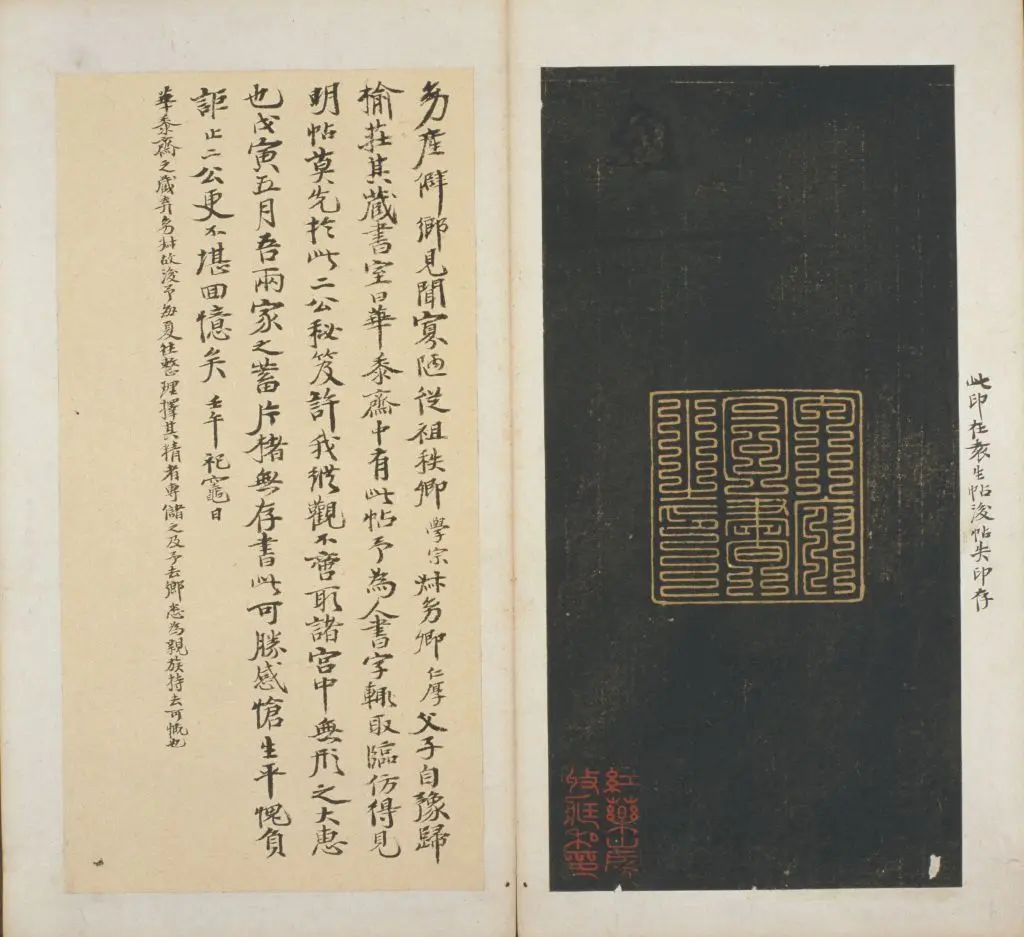 此印在袁生帖後帖失印存
紅藥山房
收藏私印
產僻鄉見聞寡陋從祖秩卿學宗叔卿仁厚父子自豫歸
榆莊其藏書室曰華黍齋中有此帖予為人書字輒取臨仿得見
明帖莫先於此二公秘笈許我縱觀不啻取諸宮中無形之大惠
也戊寅五月吾兩家之蓄片楮無存書此可勝感愴生平愧負
詎止二公更不堪回憶矣 壬午祀竈日
華黍齋之藏弆叔故後予每夏往整理擇其精者專儲之及予去鄉悉為親族持去可慨也